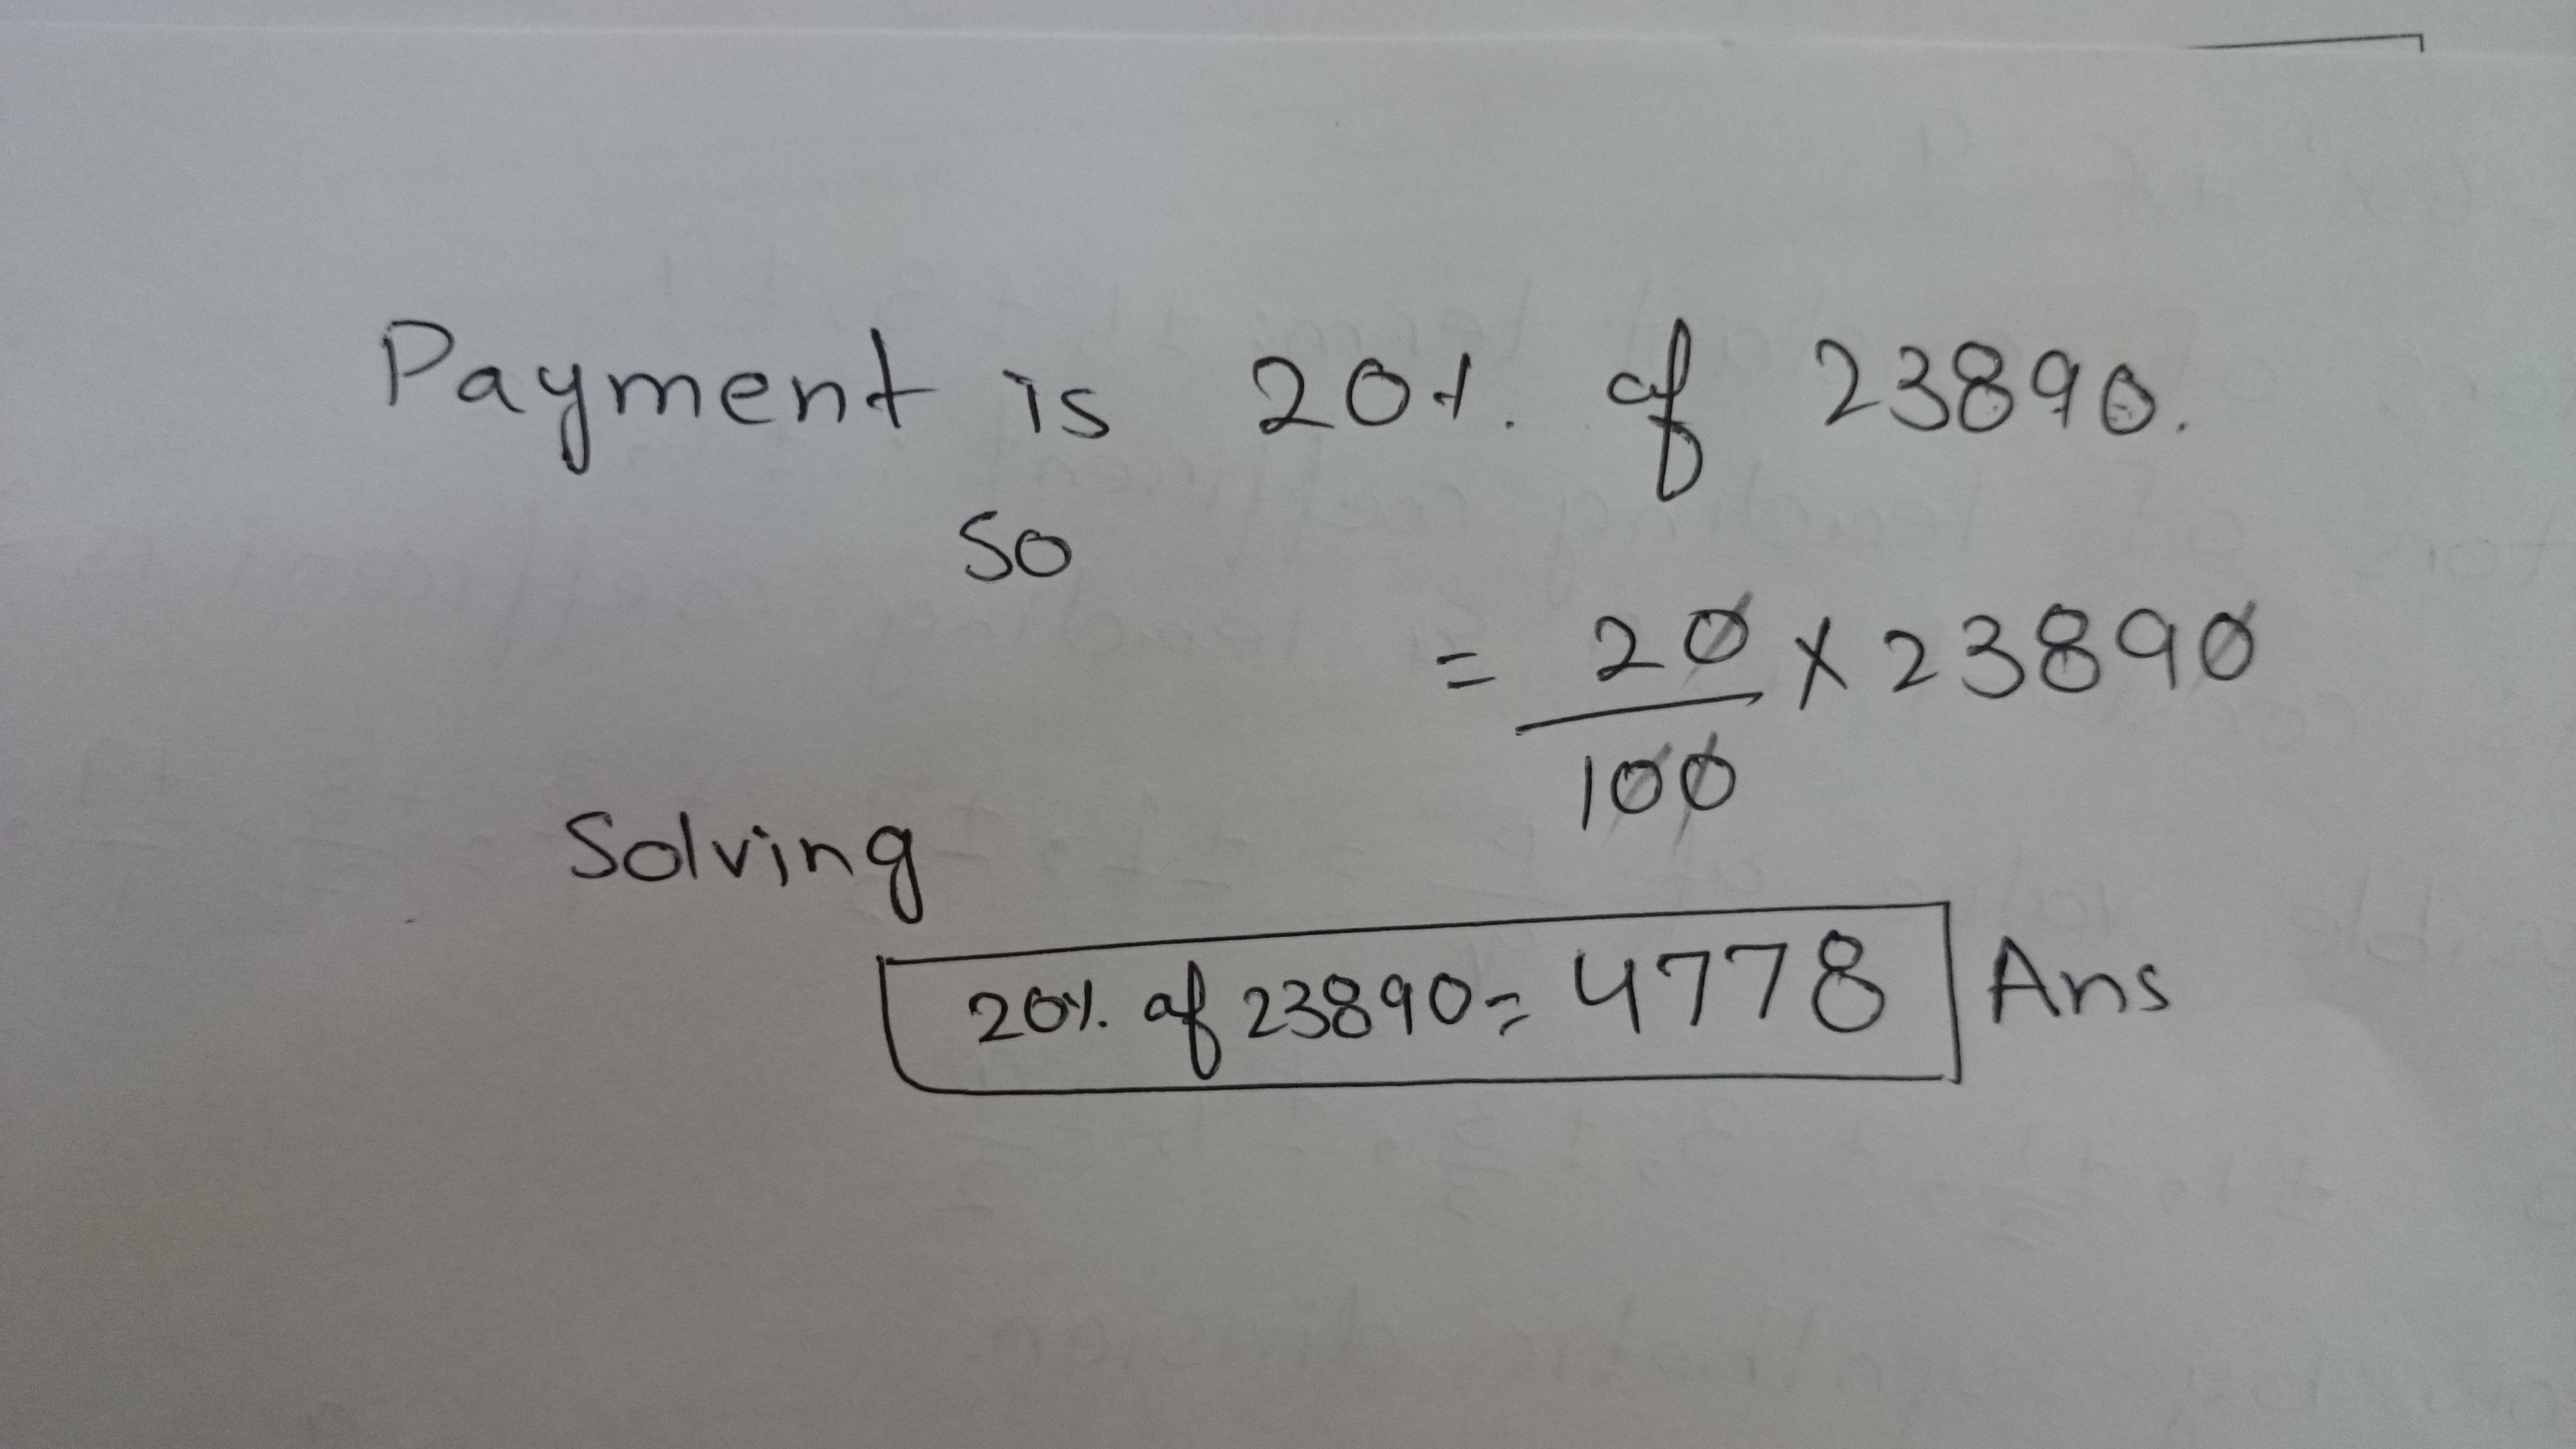 Payment is 20% of 23890.
So
= 20/100 × 23890
Solving
20% of 23890 = 4778 Ans